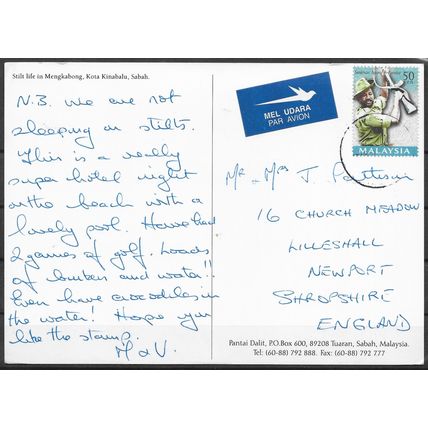 Stilt life in Mengkabong, Kota Kinabalu, Sabah.
N.B. We are not
sleeping on stilts.
This is a really
super hotel right
on the beach with a
lovely pool. Have had
2 games of golf. Loads
of bunkers and water!!
Even have crocodiles in
the water! Hope you
like the stamp.
M & V.
MEL UDARA
PAR AVION
50
SEN
MALAYSIA
Mr & Mrs J.
16 CHURCH MEADOW
LILLESHALL
NEWPORT
SHROPSHIRE
ENGLAND
Pantai Dalit, P.O.Box 600, 89208 Tuaran, Sabah, Malaysia.
Tel: (60-88) 792 888. Fax: (60-88) 792 777